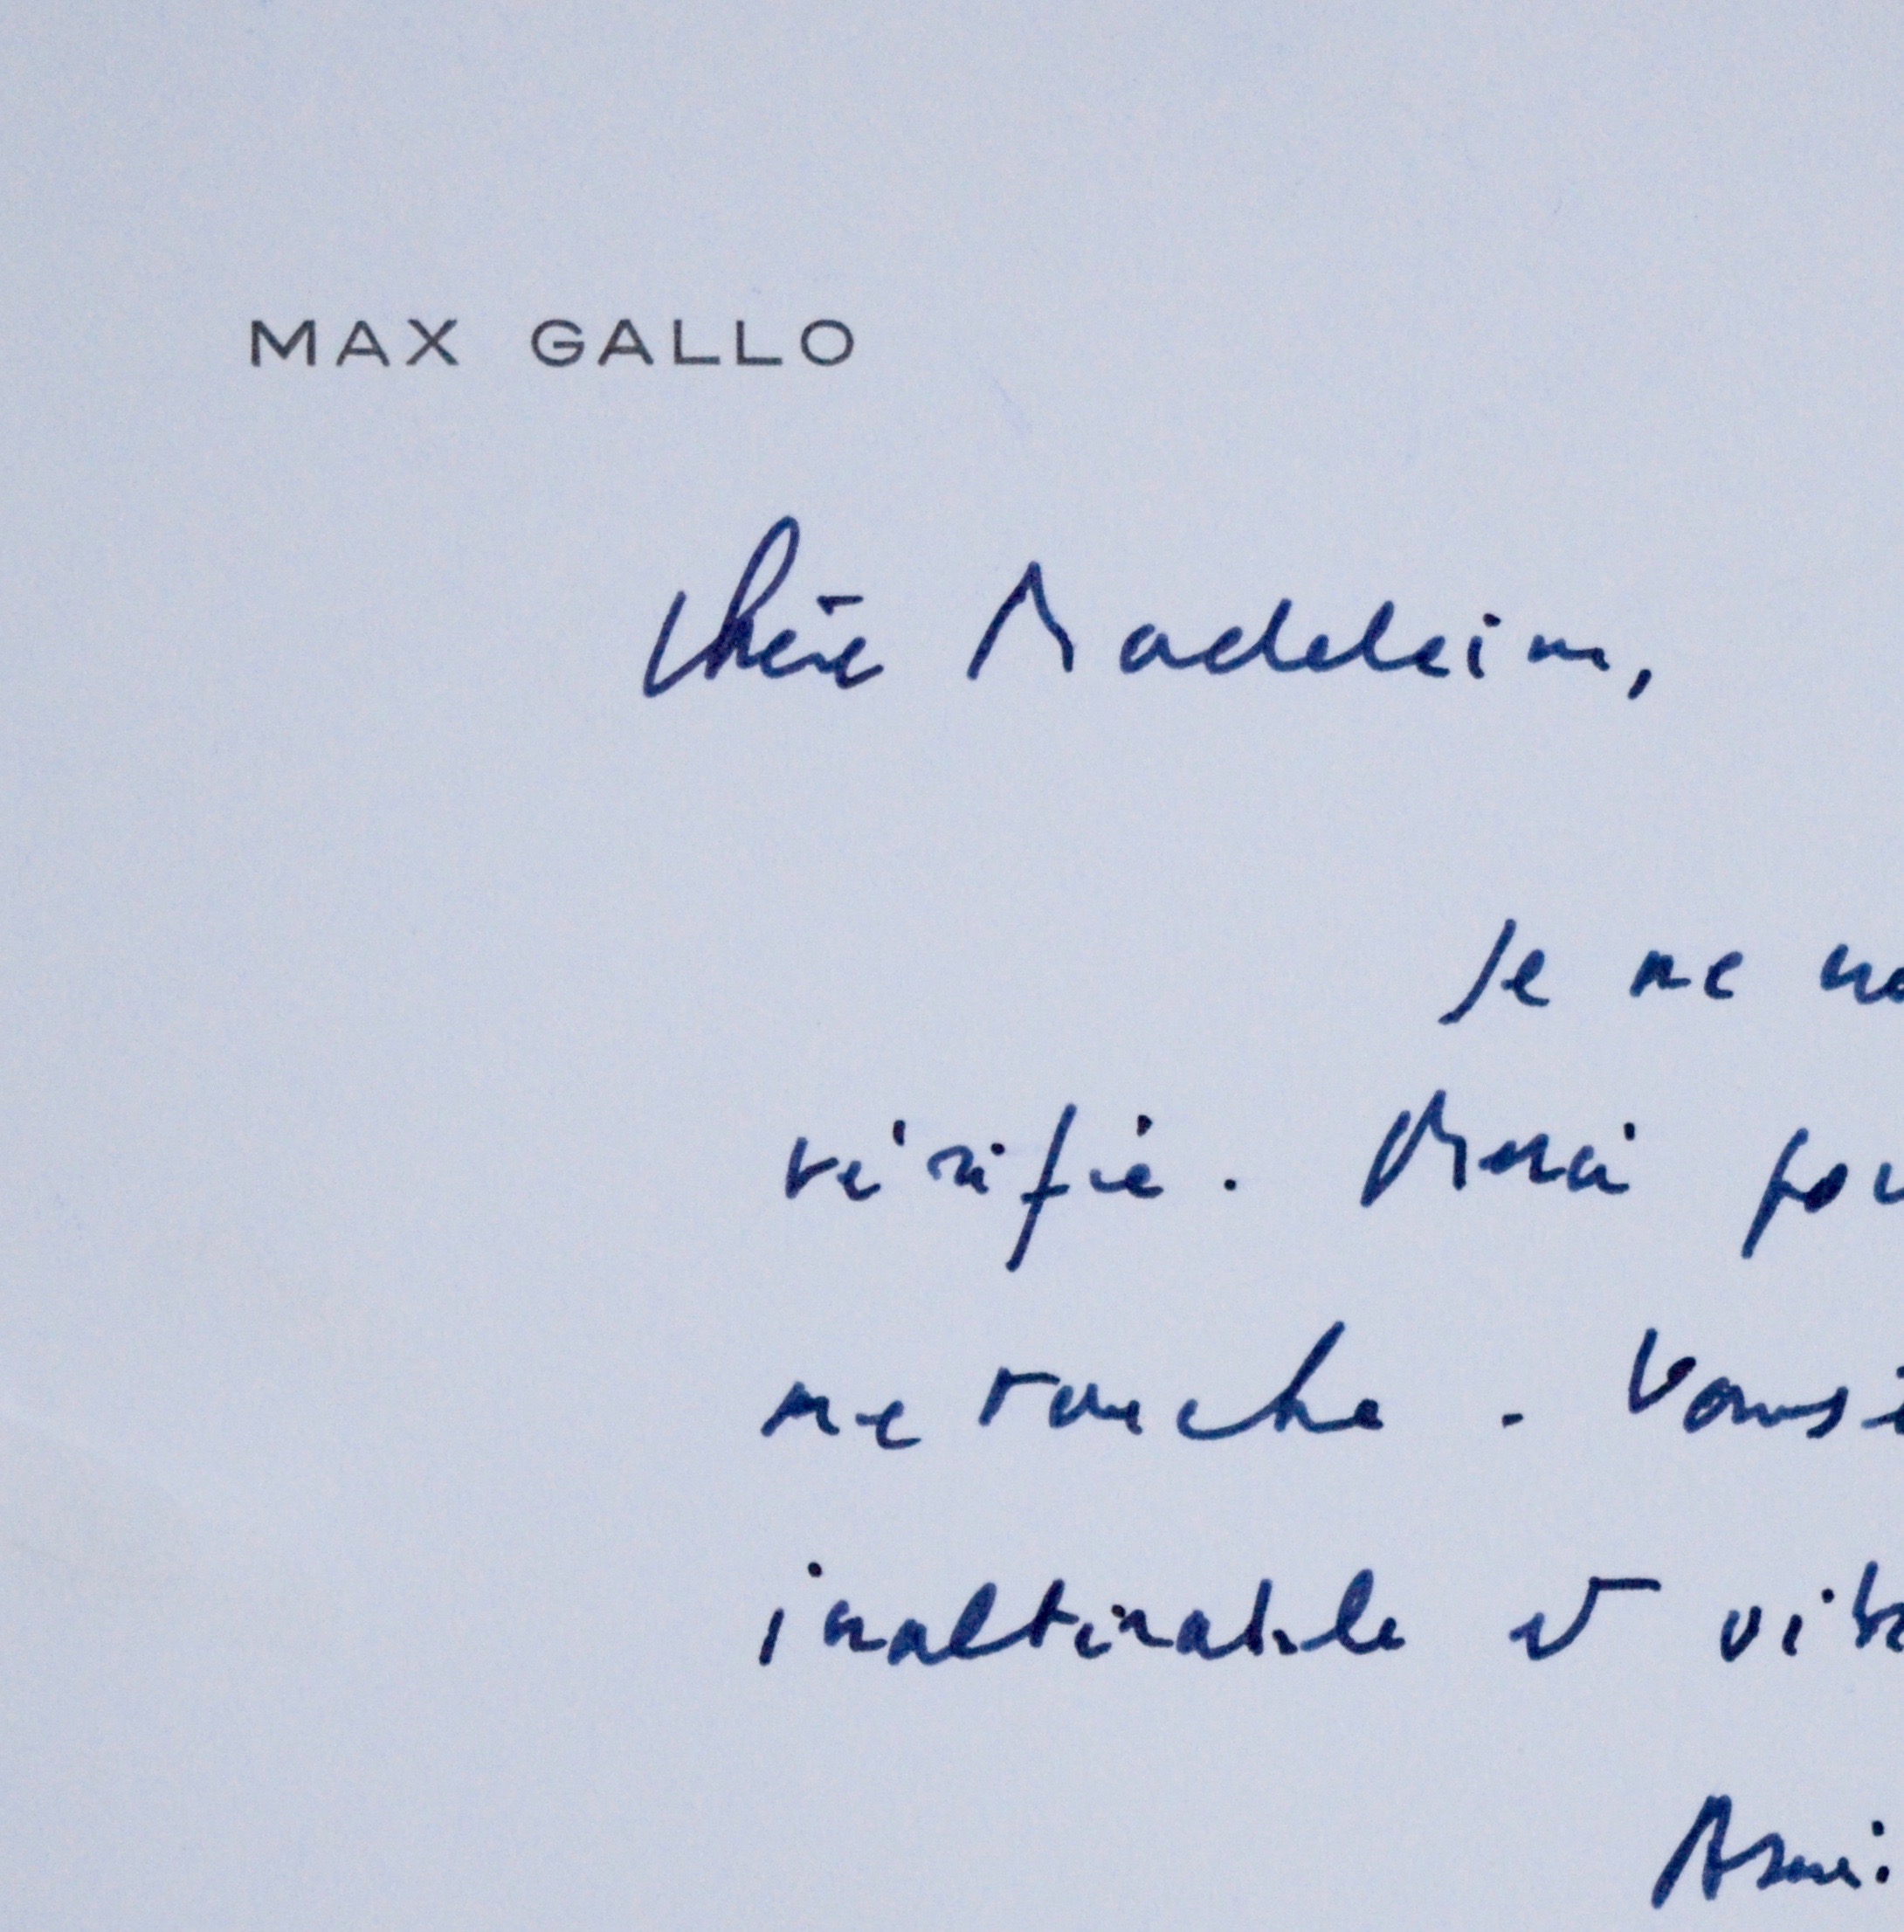 MAX GALLO
Chère Madeleine,
Je ne
vérifié. Merci pou
me touche. Vous
inaltérable et vib
Ami